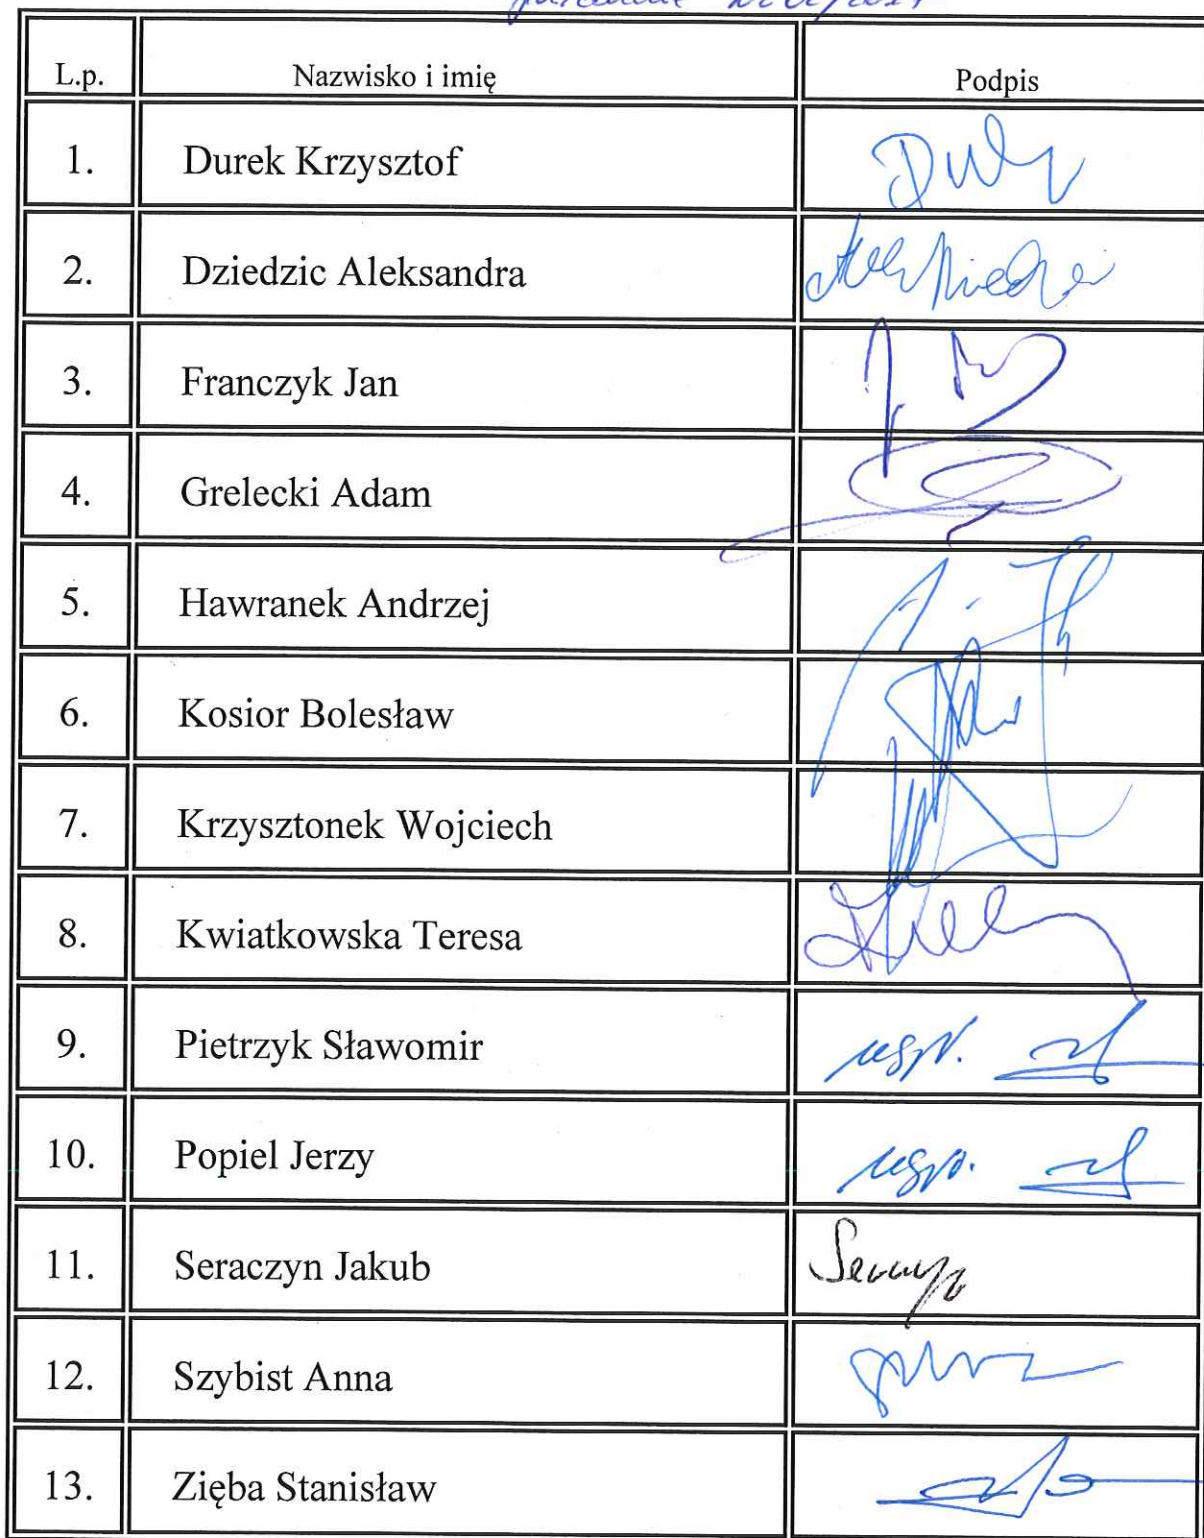 L.p. Nazwisko i imię Podpis
1. Durek Krzysztof
2. Dziedzic Aleksandra
3. Franczyk Jan
4. Grelecki Adam
5. Hawranek Andrzej
6. Kosior Bolesław
7. Krzysztonek Wojciech
8. Kwiatkowska Teresa
9. Pietrzyk Sławomir uspr.
10. Popiel Jerzy uspr.
11. Seraczyn Jakub
12. Szybist Anna
13. Zięba Stanisław